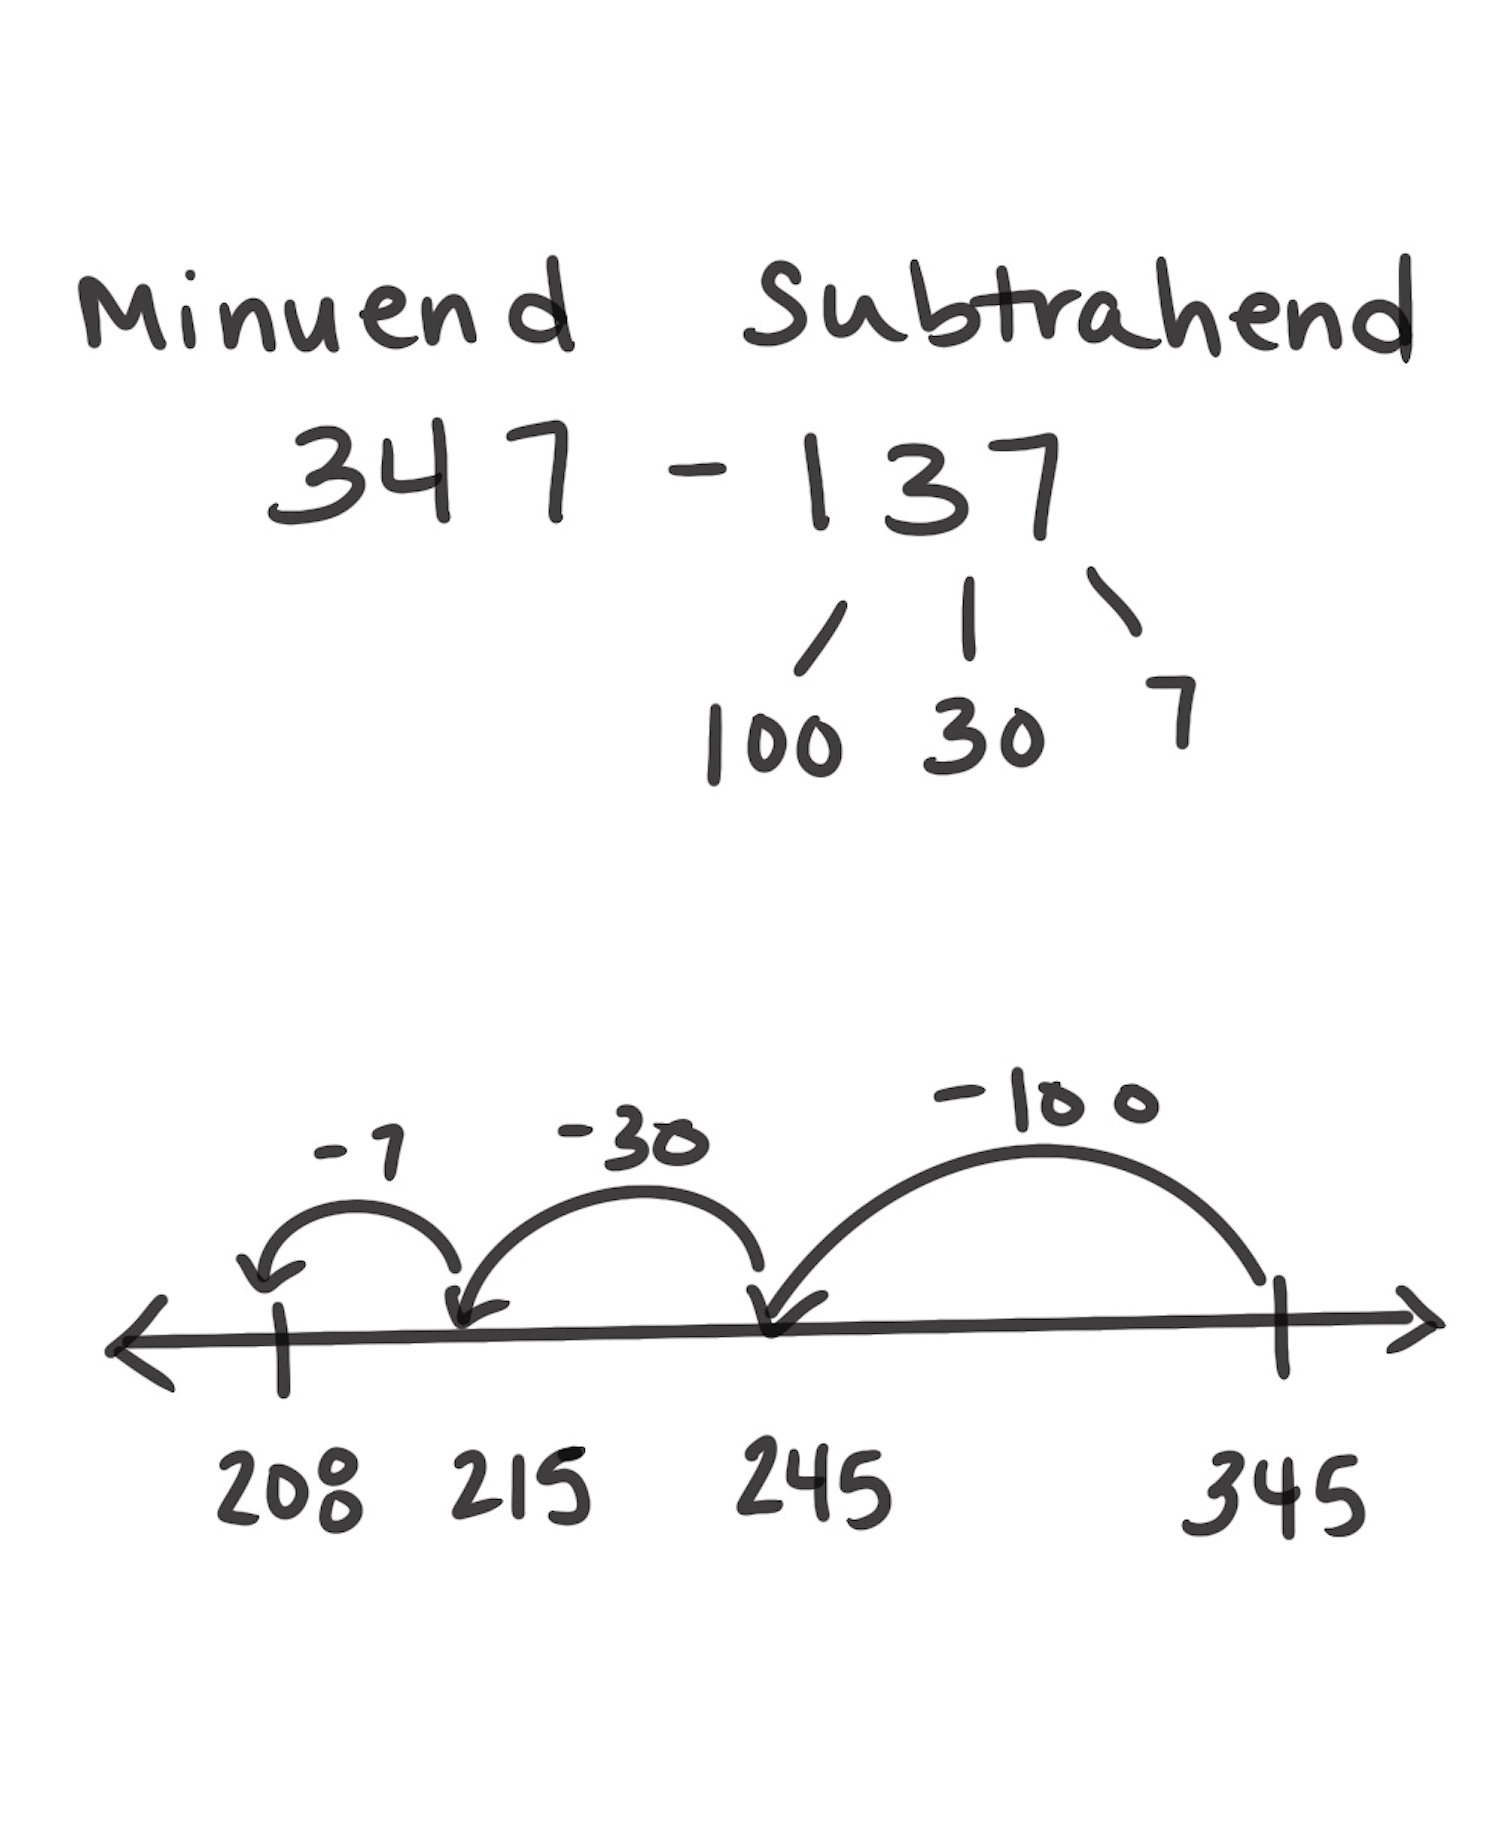 Minuend Subtrahend
347 - 137
100 30 7
-7 -30 -100
208 215 245 345